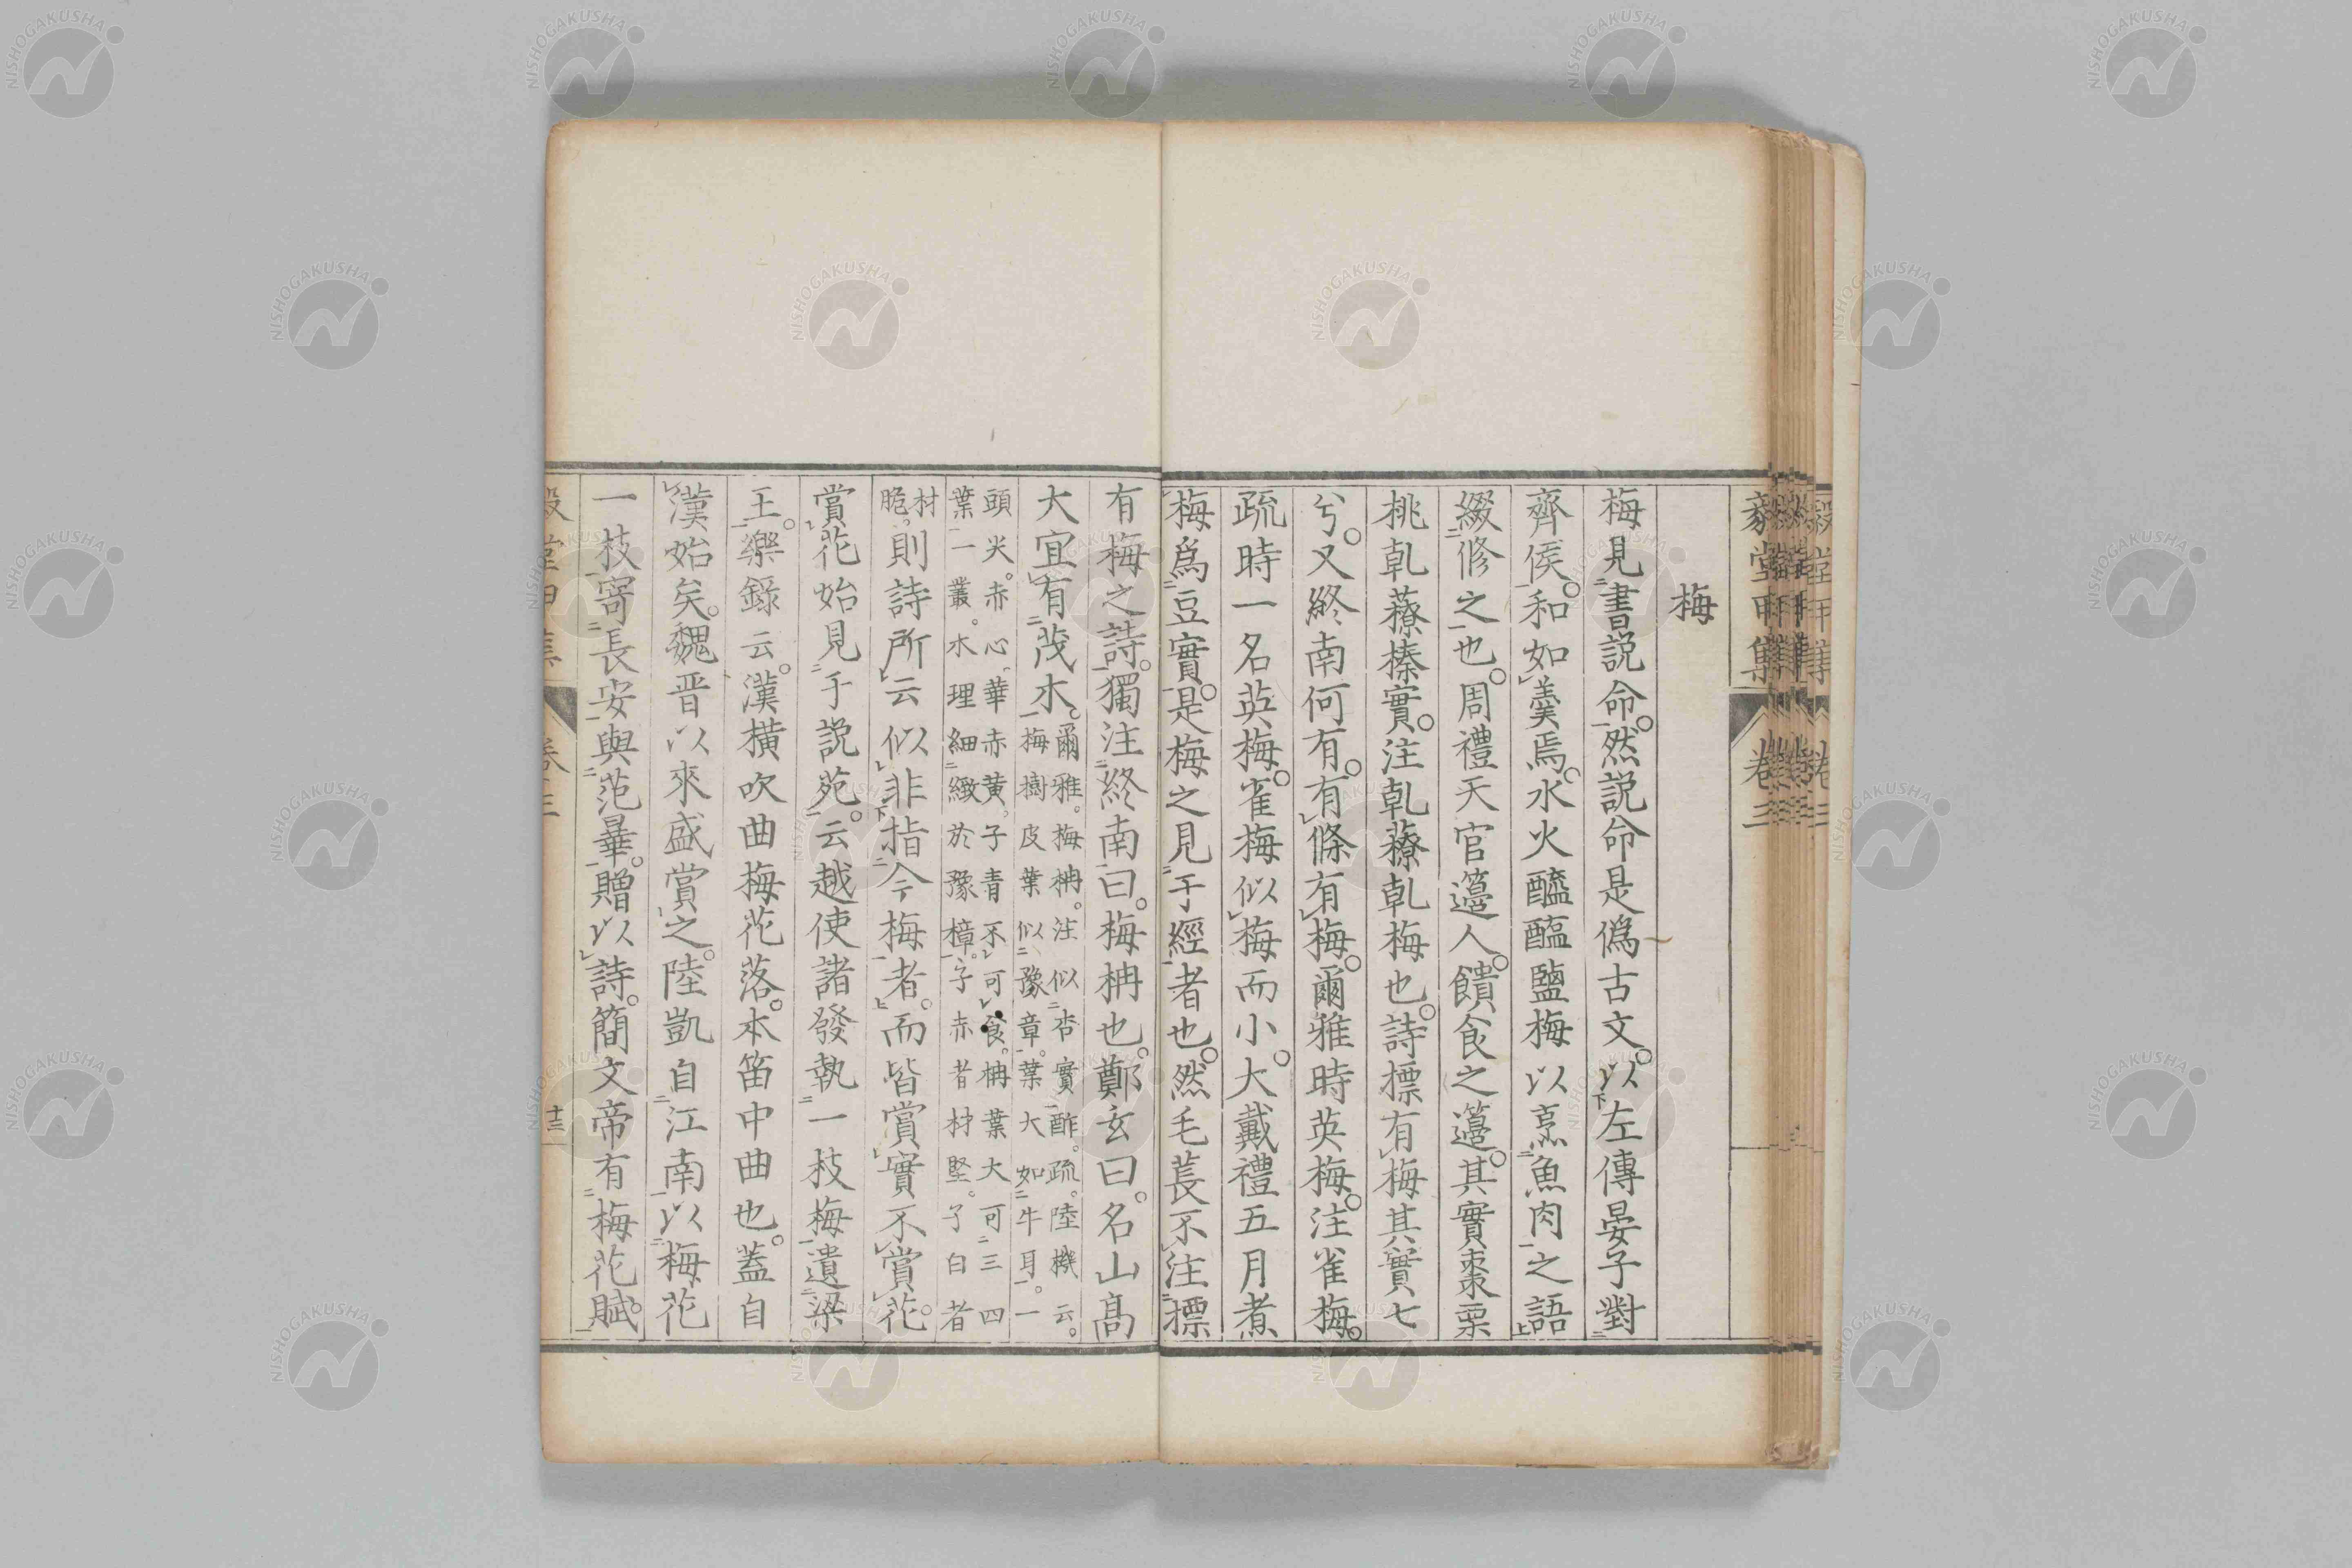 梅
梅見書説命。然説命是僞古文。以左傳晏子對
齊侯。和如羹焉。水火醯醢鹽梅以烹魚肉之語
綴修之也。周禮天官籩人。饋食之籩。其實棗栗
桃乾䕩榛實。注乾䕩乾梅也。詩摽有梅其實七
兮。又終南何有。有條有梅。爾雅時英梅。注雀梅。
疏時一名英梅。雀梅似梅而小。大戴禮五月煮
梅爲豆實。是梅之見于經者也。然毛萇不注摽
有梅之詩。獨注終南曰。梅柟也。鄭玄曰。名山高
大宜有茂木。爾雅。梅柟。注似杏實酢。疏。陸機云。
梅樹皮葉似豫章。葉大如牛耳。一
頭尖。赤心。華赤黄。子青不可食。柟葉大可三四
葉一叢。木理細緻於豫樟。子赤者材堅。子白者
材脆。則詩所云似非指今梅者。而皆賞實不賞花。
賞花始見于説苑。云越使諸發執一枝梅遺梁
王。樂錄云。漢横吹曲梅花落。本笛中曲也。蓋自
漢始矣。魏晋以來盛賞之。陸凱自江南以梅花
一枝寄長安與范曄。贈以詩。簡文帝有梅花賦。
卷三
十三
毅堂甲集
卷三
NISHOGAKUSHA